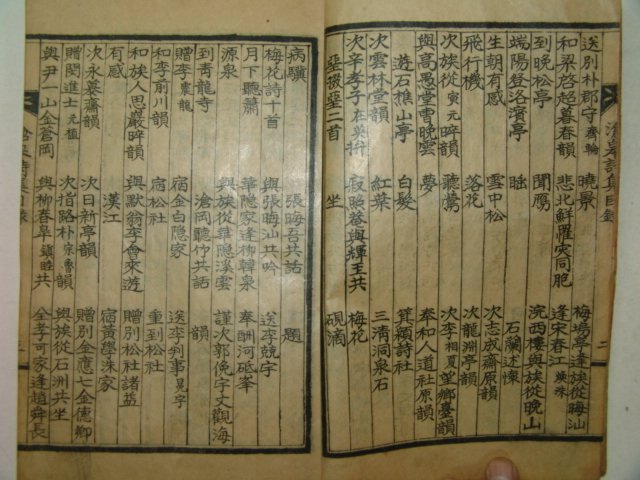 滄皐詩集目錄 二
送別朴郡守 齊輪 曉景 梅塢亭逢族從晦汕
和梁啓超暮春韻 悲北鮮罹灾同胞 逢宋春江
到晩松亭 聞鴈 浣西樓與族從晩山
端陽登洛濱亭 睡 石蘭述懷
生朝有感 雪中松 次志成齋原韻
飛行機 落花 次龍淵亭韻
次族從 寅元 晬韻 聽鶯 次李 相夏 望鄕臺韻
與高愚堂雪晩雲 夢 奉和人道社原韻
遊石推山亭 白髮 穎詩社
次雲林堂韻 紅葉 三淸洞泉石
次辛孝 在英 寂晩菴與輝玉共 梅花
二首 坐 硯滴
病驥 張晦吾共話 題
梅花詩十首 與張晦汕共吟 送李兢宇
月下聽簫 華隱家逢柳韓泉 奉酬河砥峯
源泉 與族從華隱溪雲 謹次郭俛宇文觀海
到靑龍寺 滄岡聽仰共話 韻
贈李 農龍 宿金白隱家 送李判事 晃宇
和李前川韻 宿松社 重到松社
和族人思巖晬韻 與默翁李會來遊 贈別松社諸益
有感 漢江 宿黃學洙家
次永慕齋韻 次日新亭韻 贈別金應七金德卿
贈閔進士 元植 次指路朴 宗魯 韻 與族從石洲共坐
與尹一山金蒼岡 與柳春皐 鎭睦 共 金孝可家逢趙舜長
滄皐詩集目錄 三